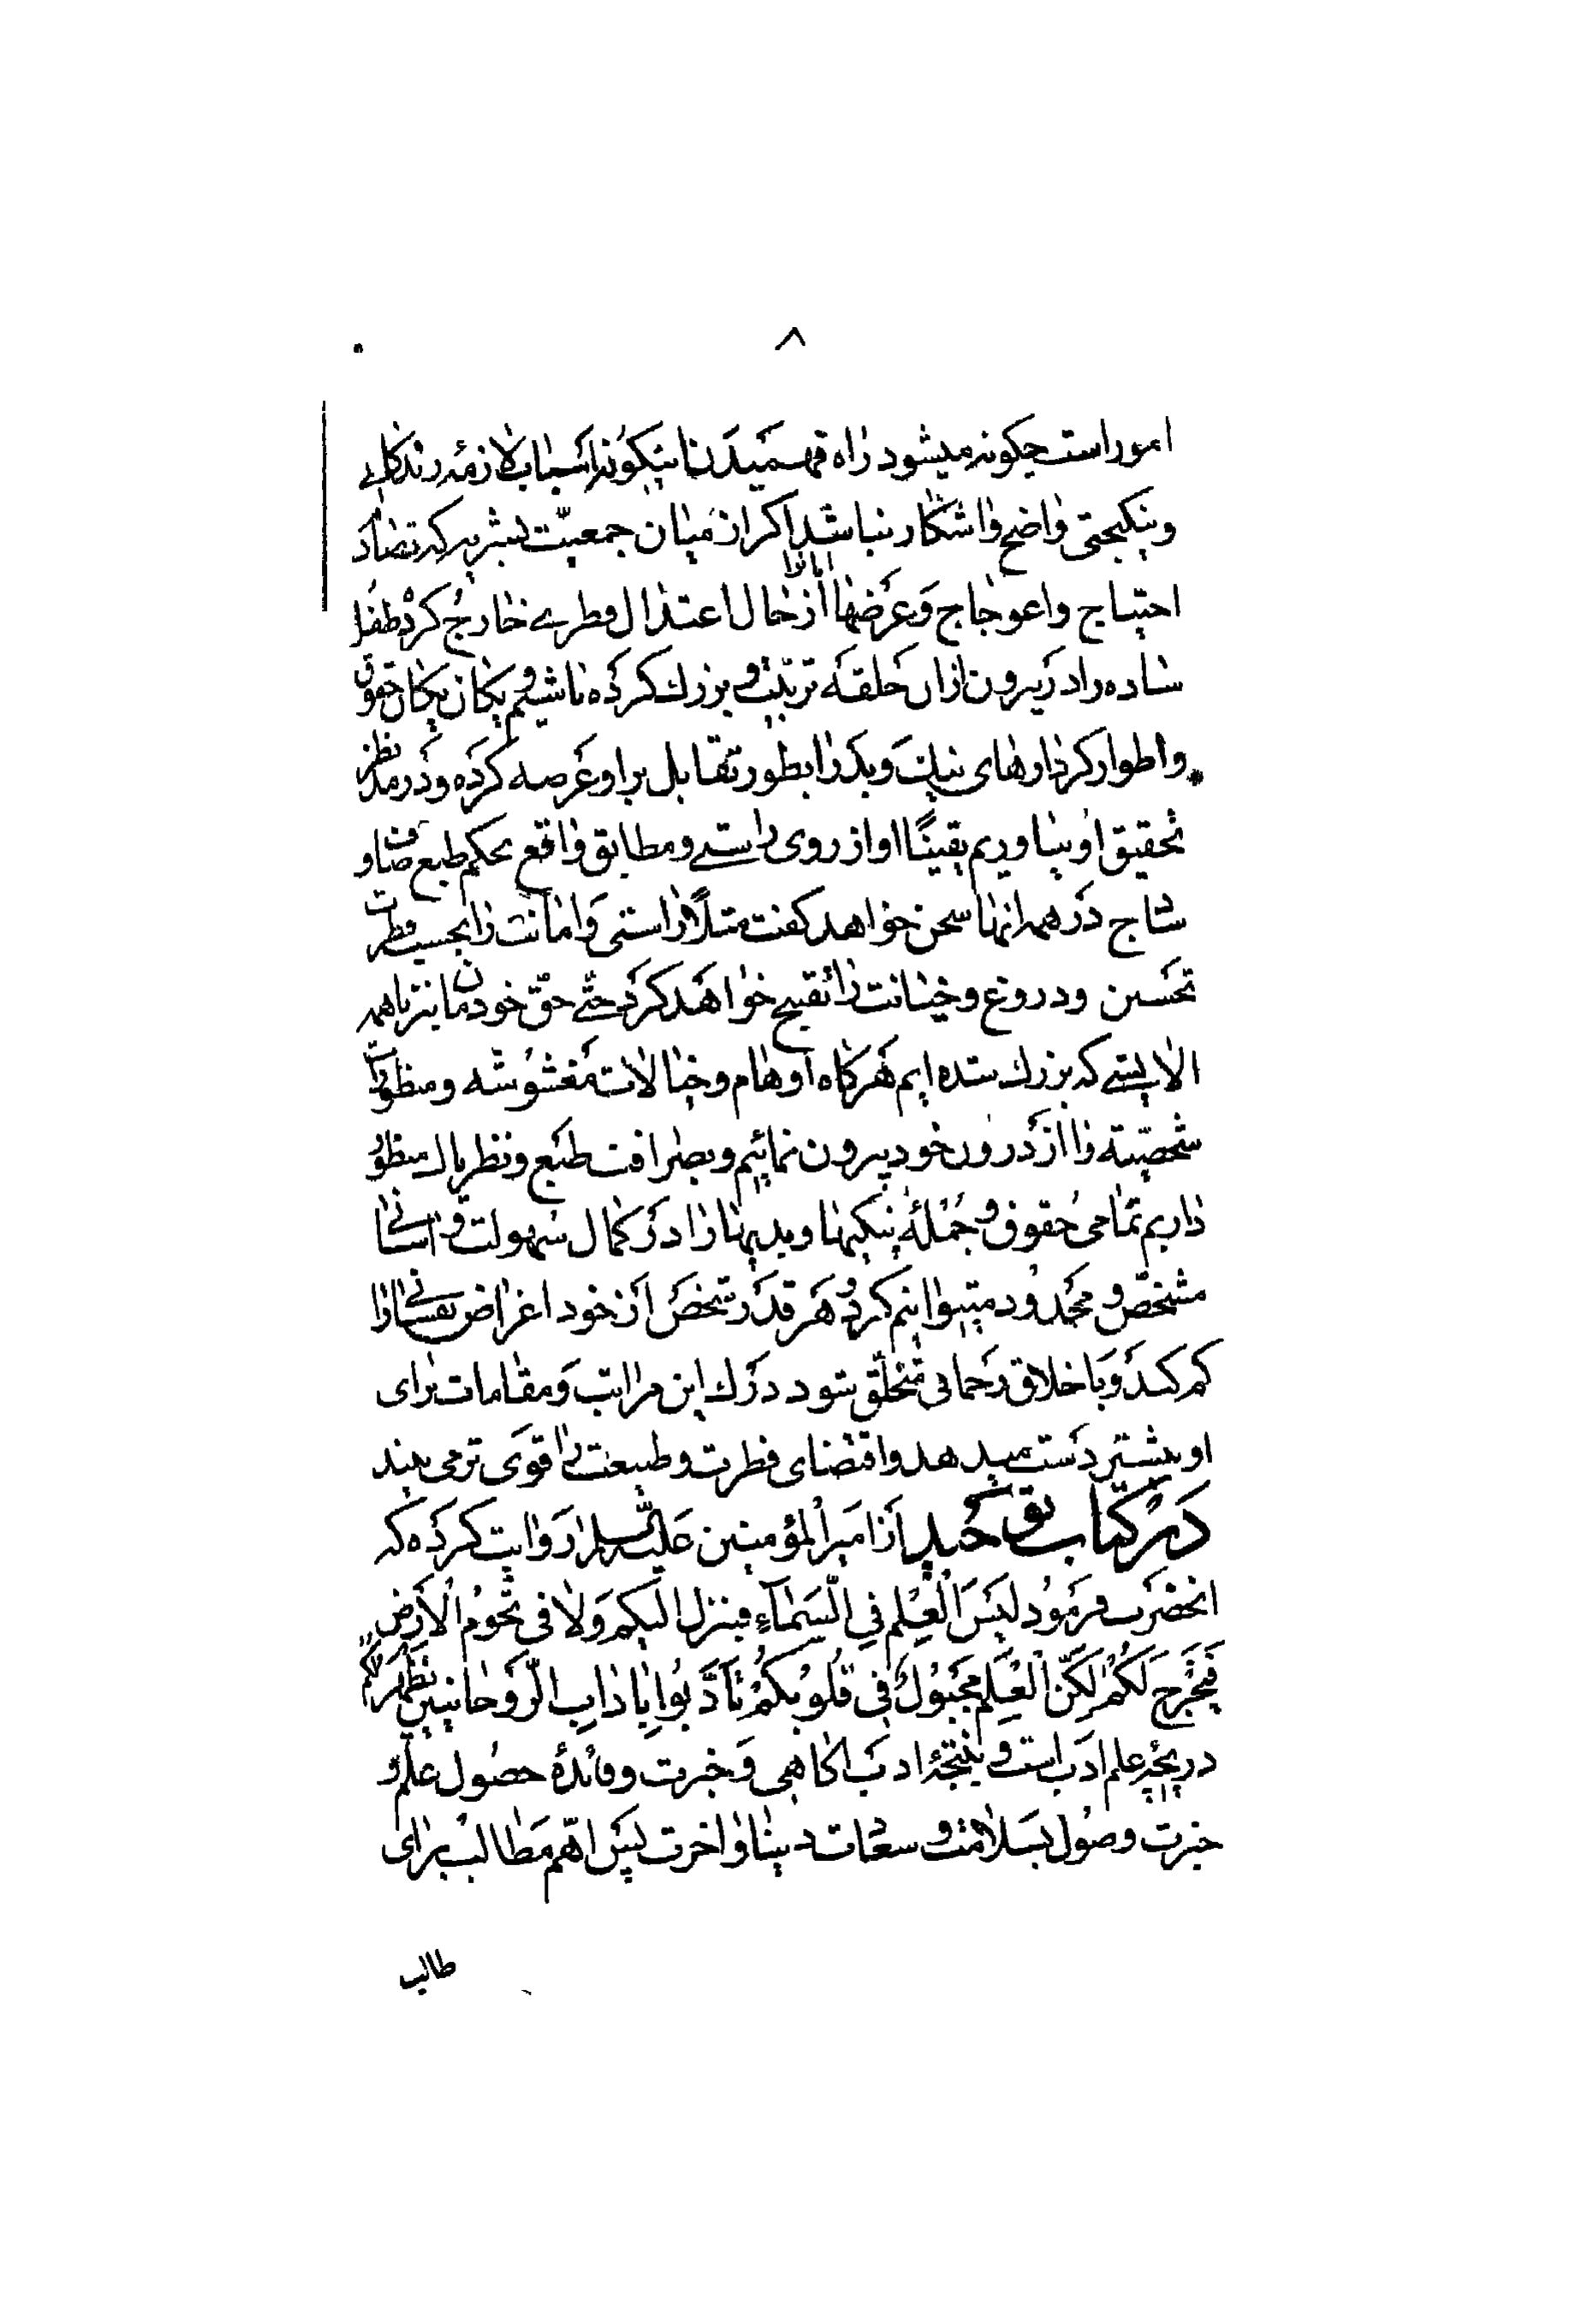 ۸
امور است چگونه میشود راه فهمیدن اینگونه اسباب لازمهٔ زندگانی
و نیکبختی واضح و اشکار نباشد اگر از میان جمعیّت بشریه که تضاد
احتیاج و اعوجاج و غرضها انانرا از حال اعتدال فطری خارج کرده طفل
ساده را در بیرون از آن حلقه تربیت و بزرگ کرده باشیم و یکان یکان حقوق
و اطوار کردارهای نیک و بد را بطور تقابل بر او عرضه کرده و در مد نظر
تحقیق او بیاوریم یقیناً او از روی راستی و مطابق واقع بحکم طبع صاف و
ساج در همه انها سخن خواهد گفت مثلاً راستی و امانت را بحسب فطرت
تحسین و دروغ و خیانت را تقبیح خواهد کرد حتّی حقّ خودمان نیز با همه
الایشی که بزرگ شده ایم هرگاه اوهام و خیالات مغشوشه و منظورات
شخصیّته را از درون خود بیرون نمائیم و بصرافت طبع و نظر پاک منظور
داریم تمامی حقوق و جملهٔ نیکیها و بدیها را در کمال سهولت و اسانی
مشخّص و محدود میتوانیم کرد و هر قدر شخص از خود اغراض نفسانی را
کم کند و با خلاق رحمانی متخلّق شود درک این مراتب و مقامات برای
او بیشتر دست میدهد و اقتضای فطرت و طبیعت را قوی تر می بیند
در کتاب توحید از امیرالمؤمنین علیه السلام روایت کرده که
انحضرت فرمود لَیسَ الْعِلم فِی السَّمآءِ فینزل الیکم وَلا فی تُخُومِ الْاَرْضِ
فَیَخْرُجَ لَکُمْ لکِنَّ الْعِلمَ مَجْبُولٌ فی قُلُوبِکُمْ تَأَدَّبُوا بِاٰدابِ الرَّوحانیینَ یَظْهَرَ لَکُم
دریچهٔ علم ادب است و نتیجهٔ ادب اگاهی و خبرت و فائدهٔ حصول علم و
خبرت وصول بسلامت و سعادت دنیا و اخرت پس اهّم مطالب برای
طالب